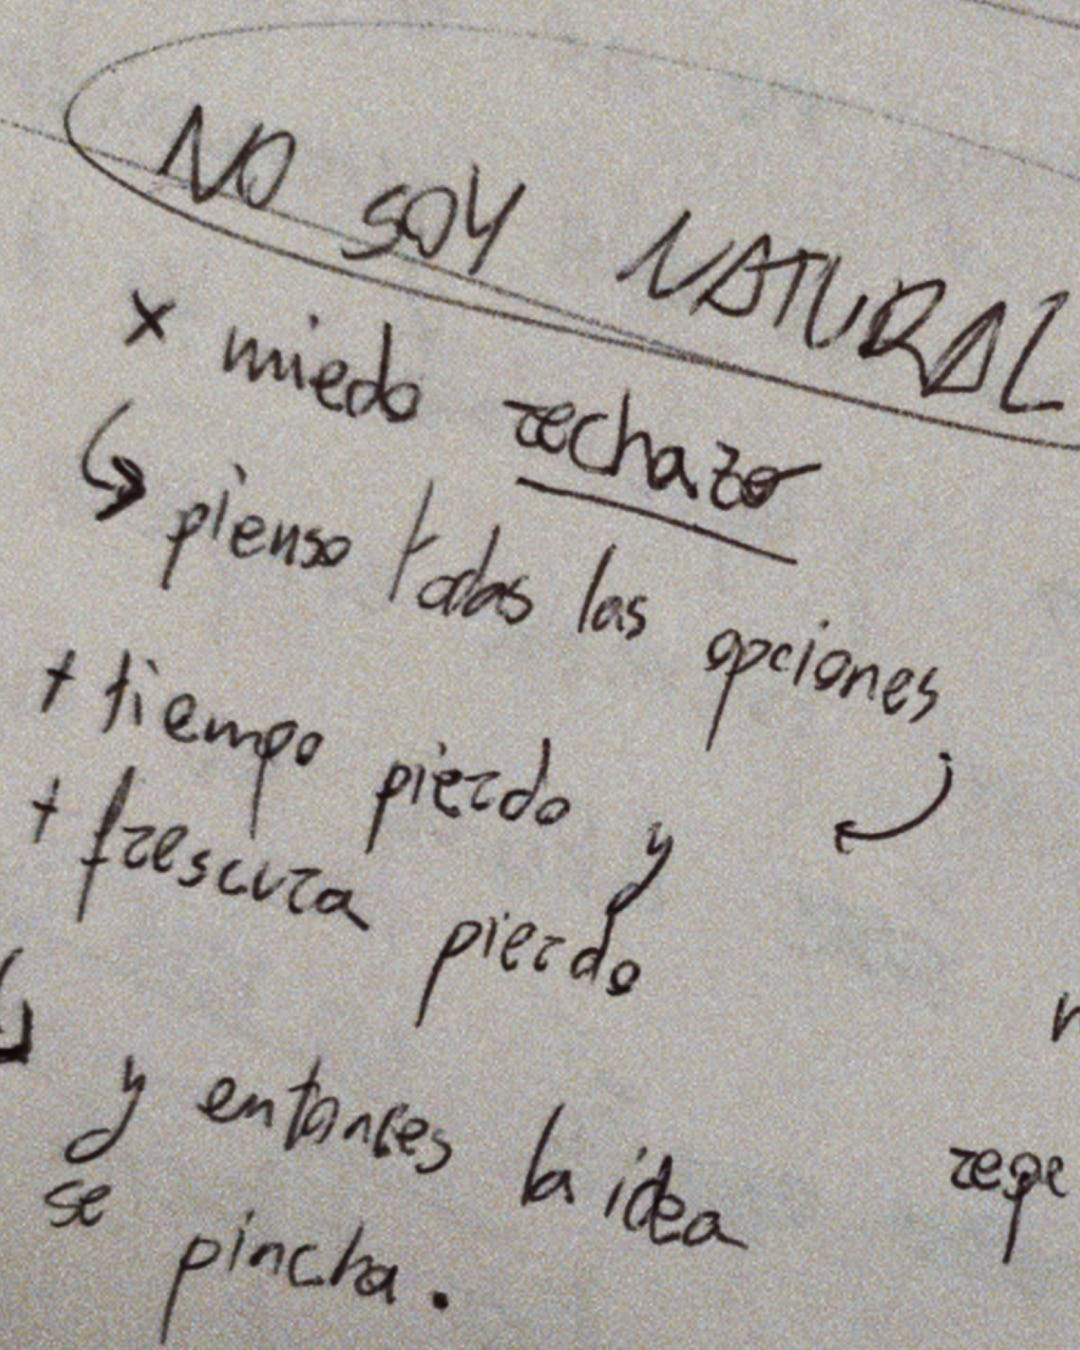 NO SOY NATURAL
x miedo rechazo
↳ pienso todas las opciones
+ tiempo pierdo y
+ frescura pierdo
↳ y entonces la idea
se pincha.